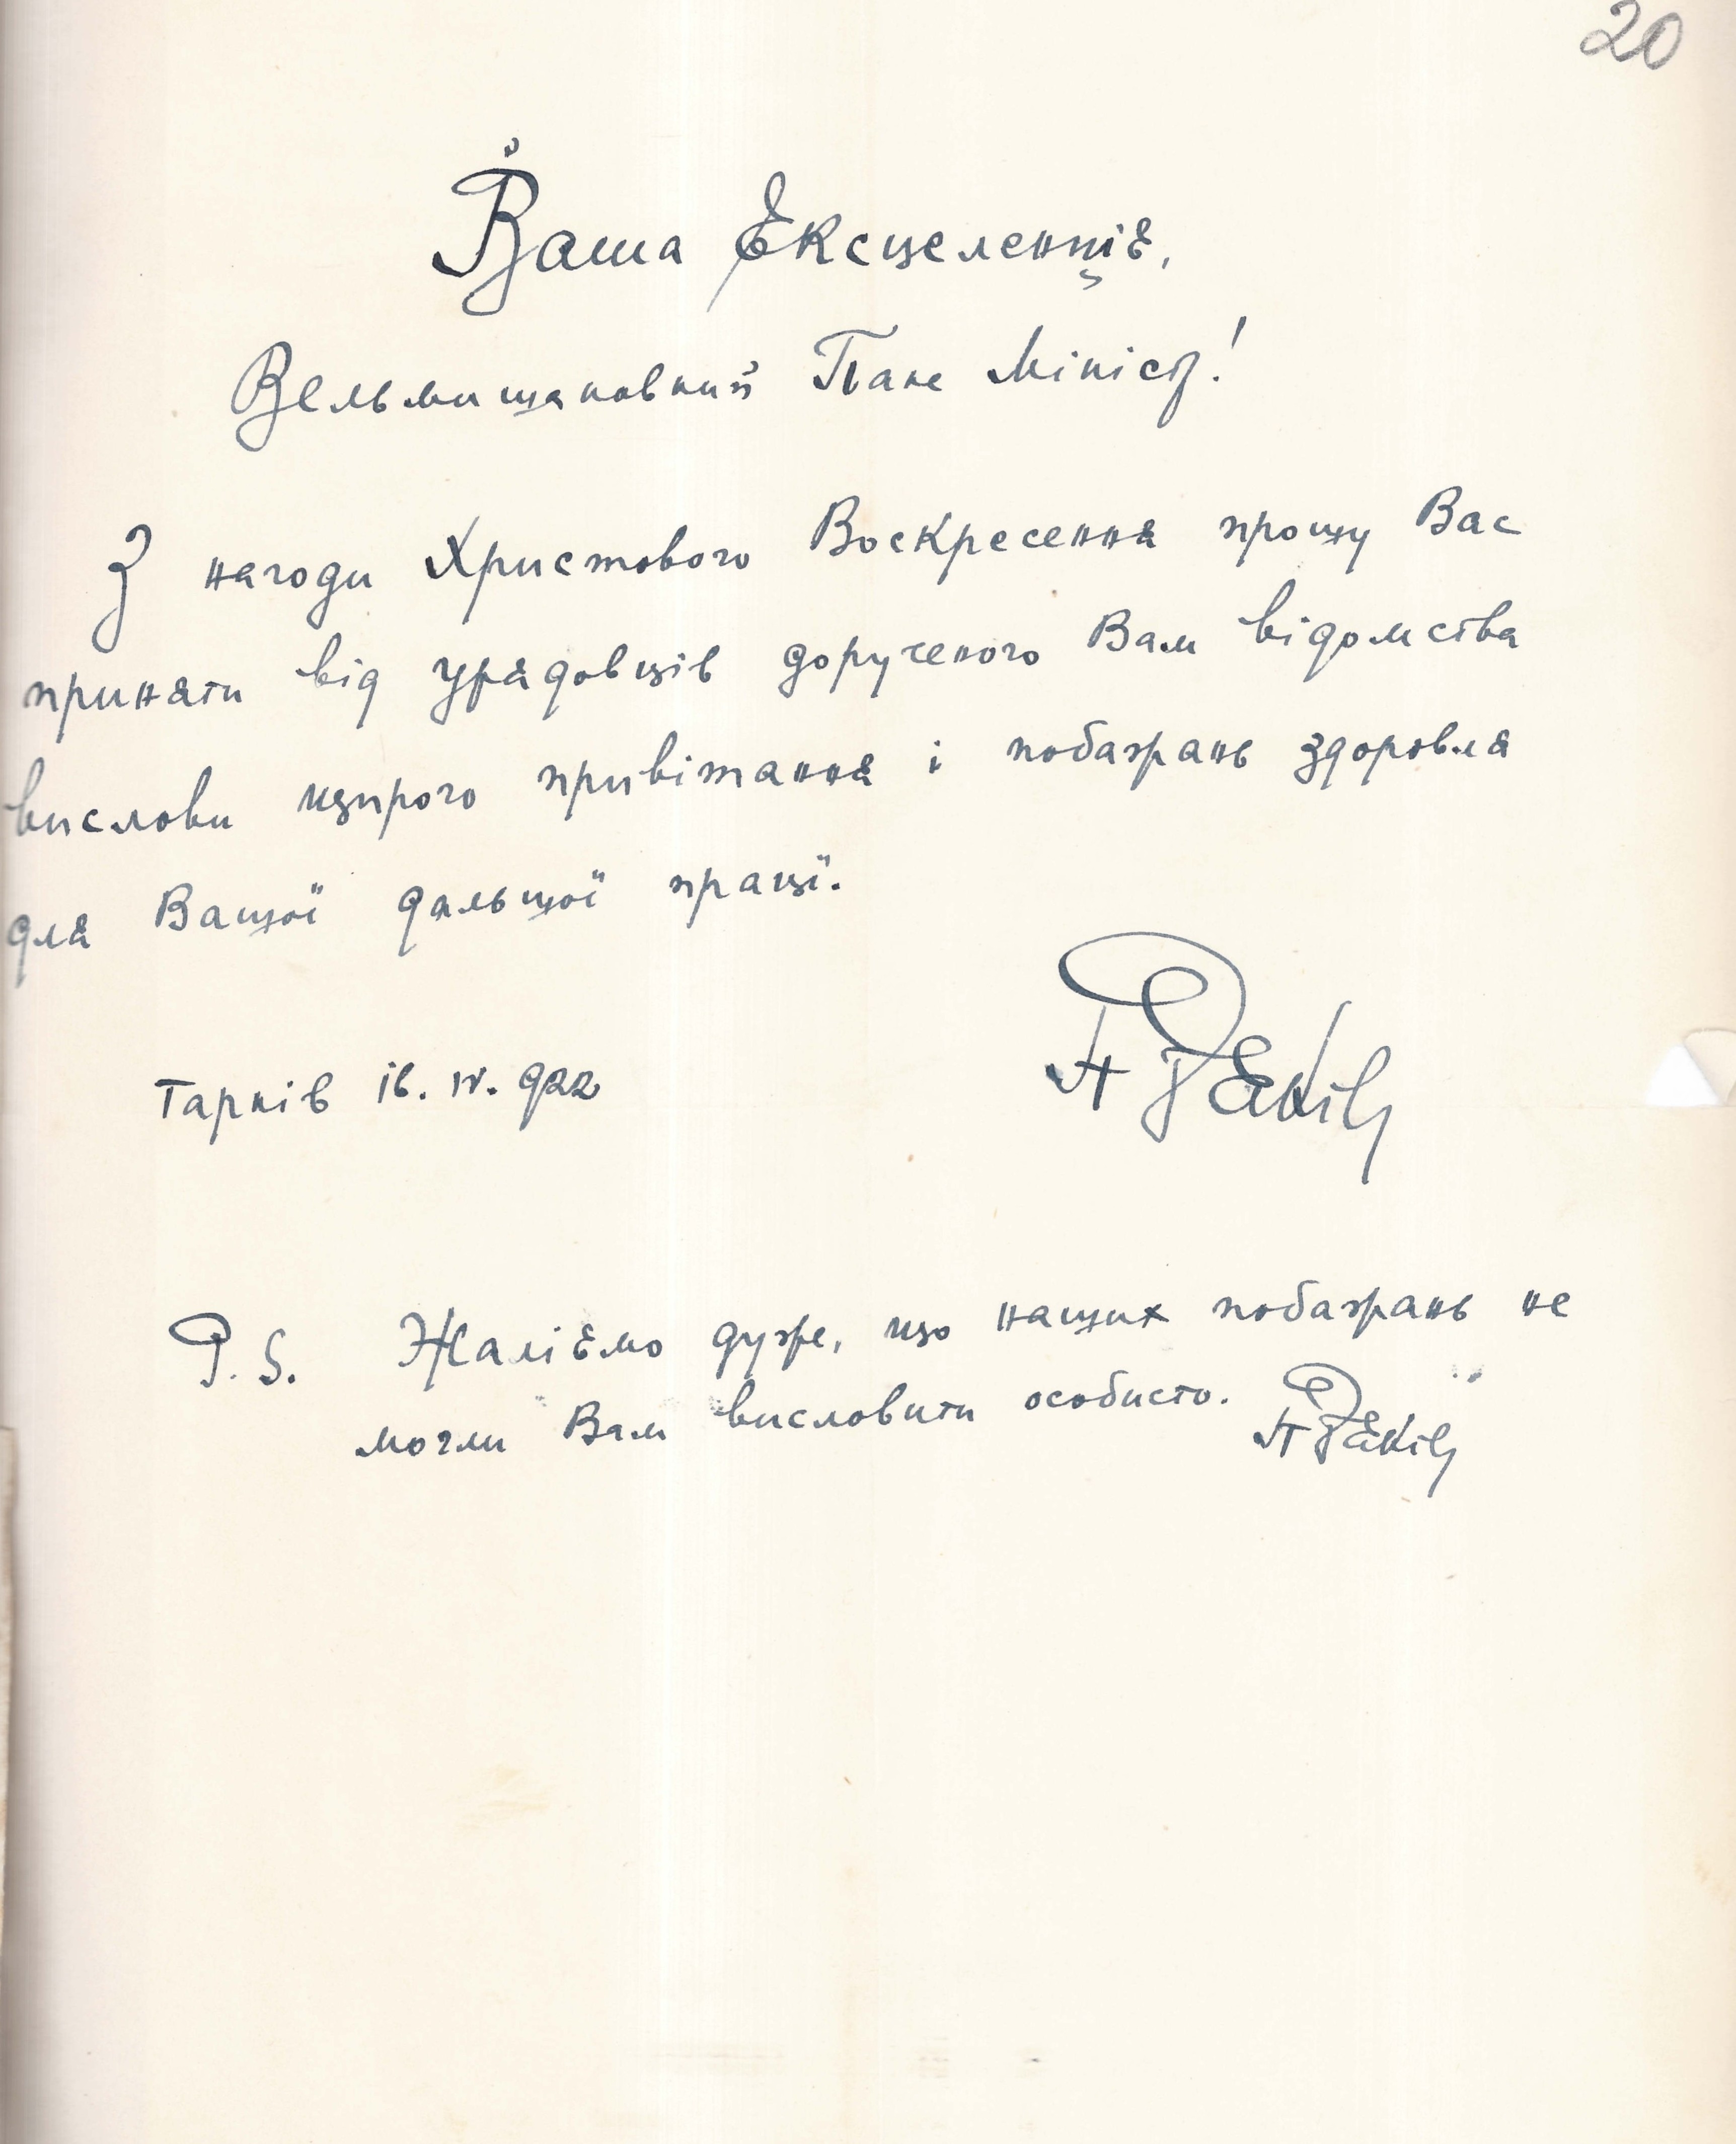 20
Ваша Ексцеленціє,
Вельмишановний Пане Міністр!
З нагоди Христового Воскресення прошу Вас
приняти від урядовців дорученого Вам відомства
вислови щирого привітання і побажань здоровля
для Вашої дальшої праці.
Тарнів 16. IV. 922
P. S. Жаліємо дуже, що наших побажань не
могли Вам висловити особисто.